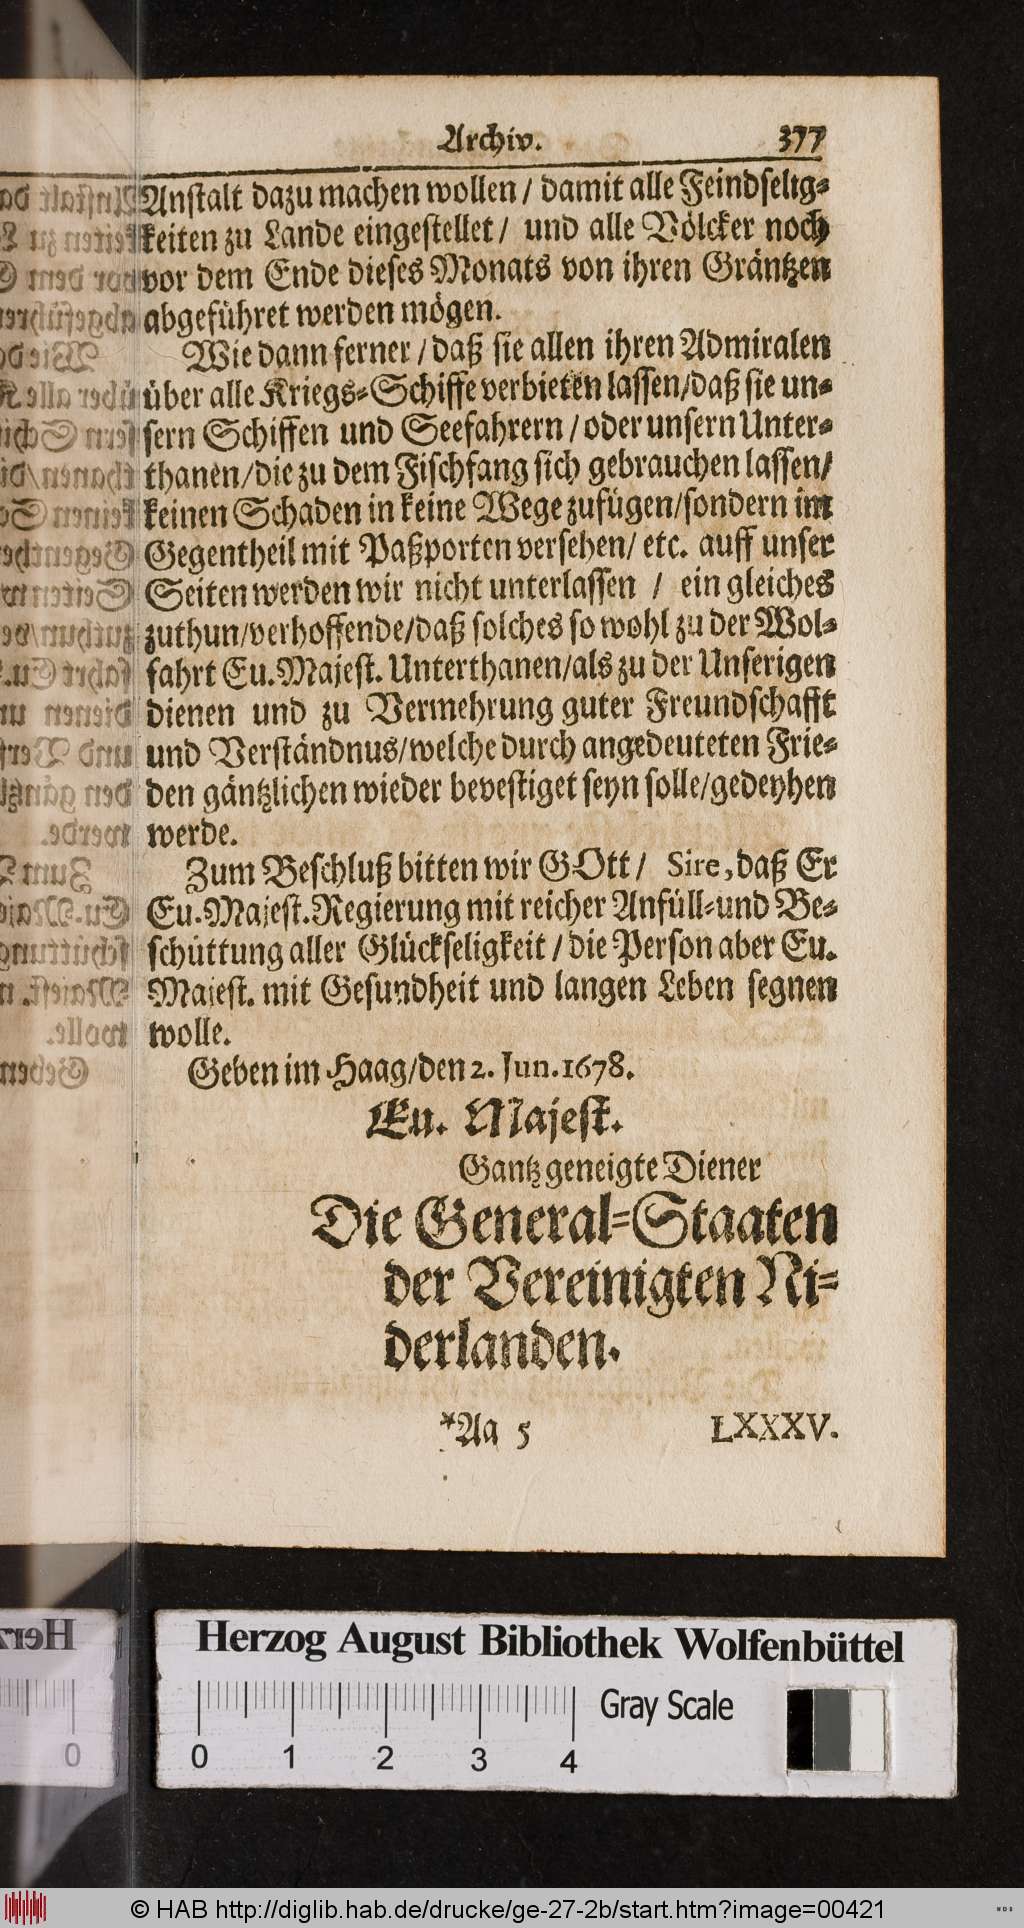 Archiv. 377
Anstalt dazu machen wollen / damit alle Feindselig-
keiten zu Lande eingestellet / und alle Völcker noch
vor dem Ende dieses Monats von ihren Gräntzen
abgeführet werden mögen.
Wie dann ferner / daß sie allen ihren Admiralen
über alle Kriegs-Schiffe verbieten lassen/daß sie un-
sern Schiffen und Seefahrern / oder unsern Unter-
thanen/die zu dem Fischfang sich gebrauchen lassen/
keinen Schaden in keine Wege zufügen/sondern im
Gegentheil mit Paßporten versehen/ etc. auff unser
Seiten werden wir nicht unterlassen / ein gleiches
zuthun/verhoffende/daß solches so wohl zu der Wol-
fahrt Eu. Majest. Unterthanen/als zu der Unserigen
dienen und zu Vermehrung guter Freundschafft
und Verständnus/welche durch angedeuteten Frie-
den gäntzlichen wieder bevestiget seyn solle/gedeyhen
werde.
Zum Beschluß bitten wir GOtt / Sire, daß Er
Eu. Majest. Regierung mit reicher Anfüll-und Be-
schüttung aller Glückseligkeit / die Person aber Eu.
Majest. mit Gesundheit und langen Leben segnen
wolle.
Geben im Haag/den 2. Jun. 1678.
Eu. Majest.
Gantz geneigte Diener
Die General-Staaten
der Vereinigten Ni-
derlanden.
*Aa 5 LXXXV.
Herzog August Bibliothek Wolfenbüttel
Gray Scale
0 1 2 3 4
© HAB http://diglib.hab.de/drucke/ge-27-2b/start.htm?image=00421